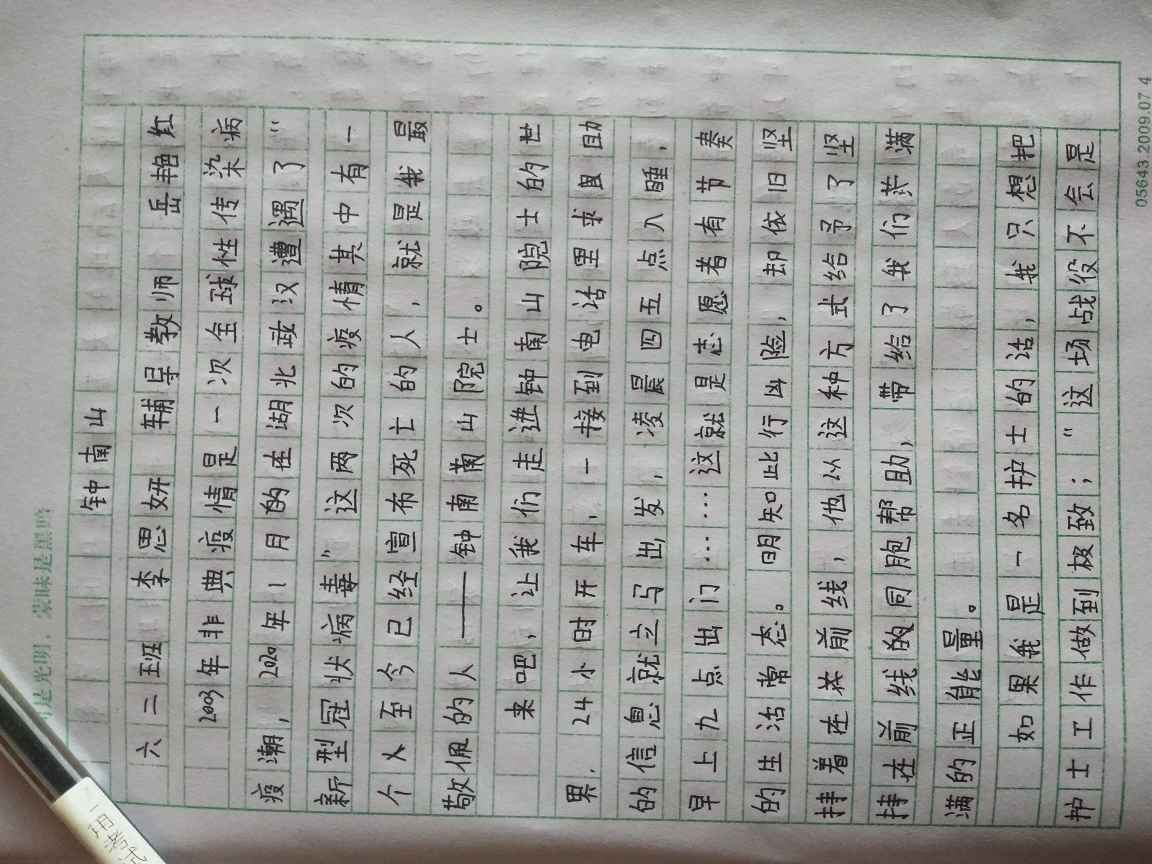 是光明，蒙昧是黑暗
钟南山
六二班 李思妍 辅导教师 岳艳红
2003年非典疫情是一次全球性传染病
疫潮，2020年1月的在湖北武汉遭遇了“
新型冠状病毒”这两次的疫情其中有一
个人至今已经宣布死亡的人，就是我最
敬佩的人——钟南山院士。
来吧，让我们走进钟南山院士的世
界，24小时开车，一接到电话里求且助
的信息就立马出发，凌晨四五点入睡，
早上九点出门……这就是志愿者有节奏
的生活常态。明知此行凶险，却依旧坚
持着在共前线，他以这种方式给予了坚
持在前线的同胞帮助，带给了我们满满
的正能量。
如果我是一名护士的话，我只想把
护士工作做到极致；“这场战役不会是
05643 2009.07 4